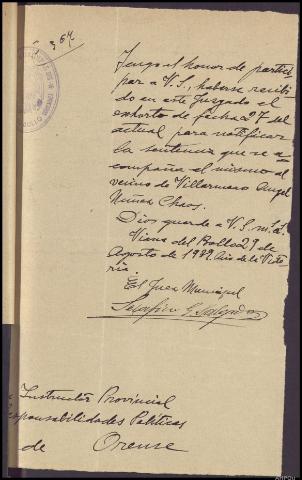 364
Tengo el honor de partici
par a V.S., haberse recibi
do en este Juzgado el
exhorto de fecha 27 del
actual para notificar
la sentencia que se a-
compaña el mismo al
vecino de Villarmeao Angel
Nuñez Chao.
Dios guarde a V.S. m. a.
Viana del Bollo 29 de
Agosto de 1939. Año de la Victo
ria.
El Juez Municipal
Instructor Provincial
Responsabilidades Politicas
de Orense